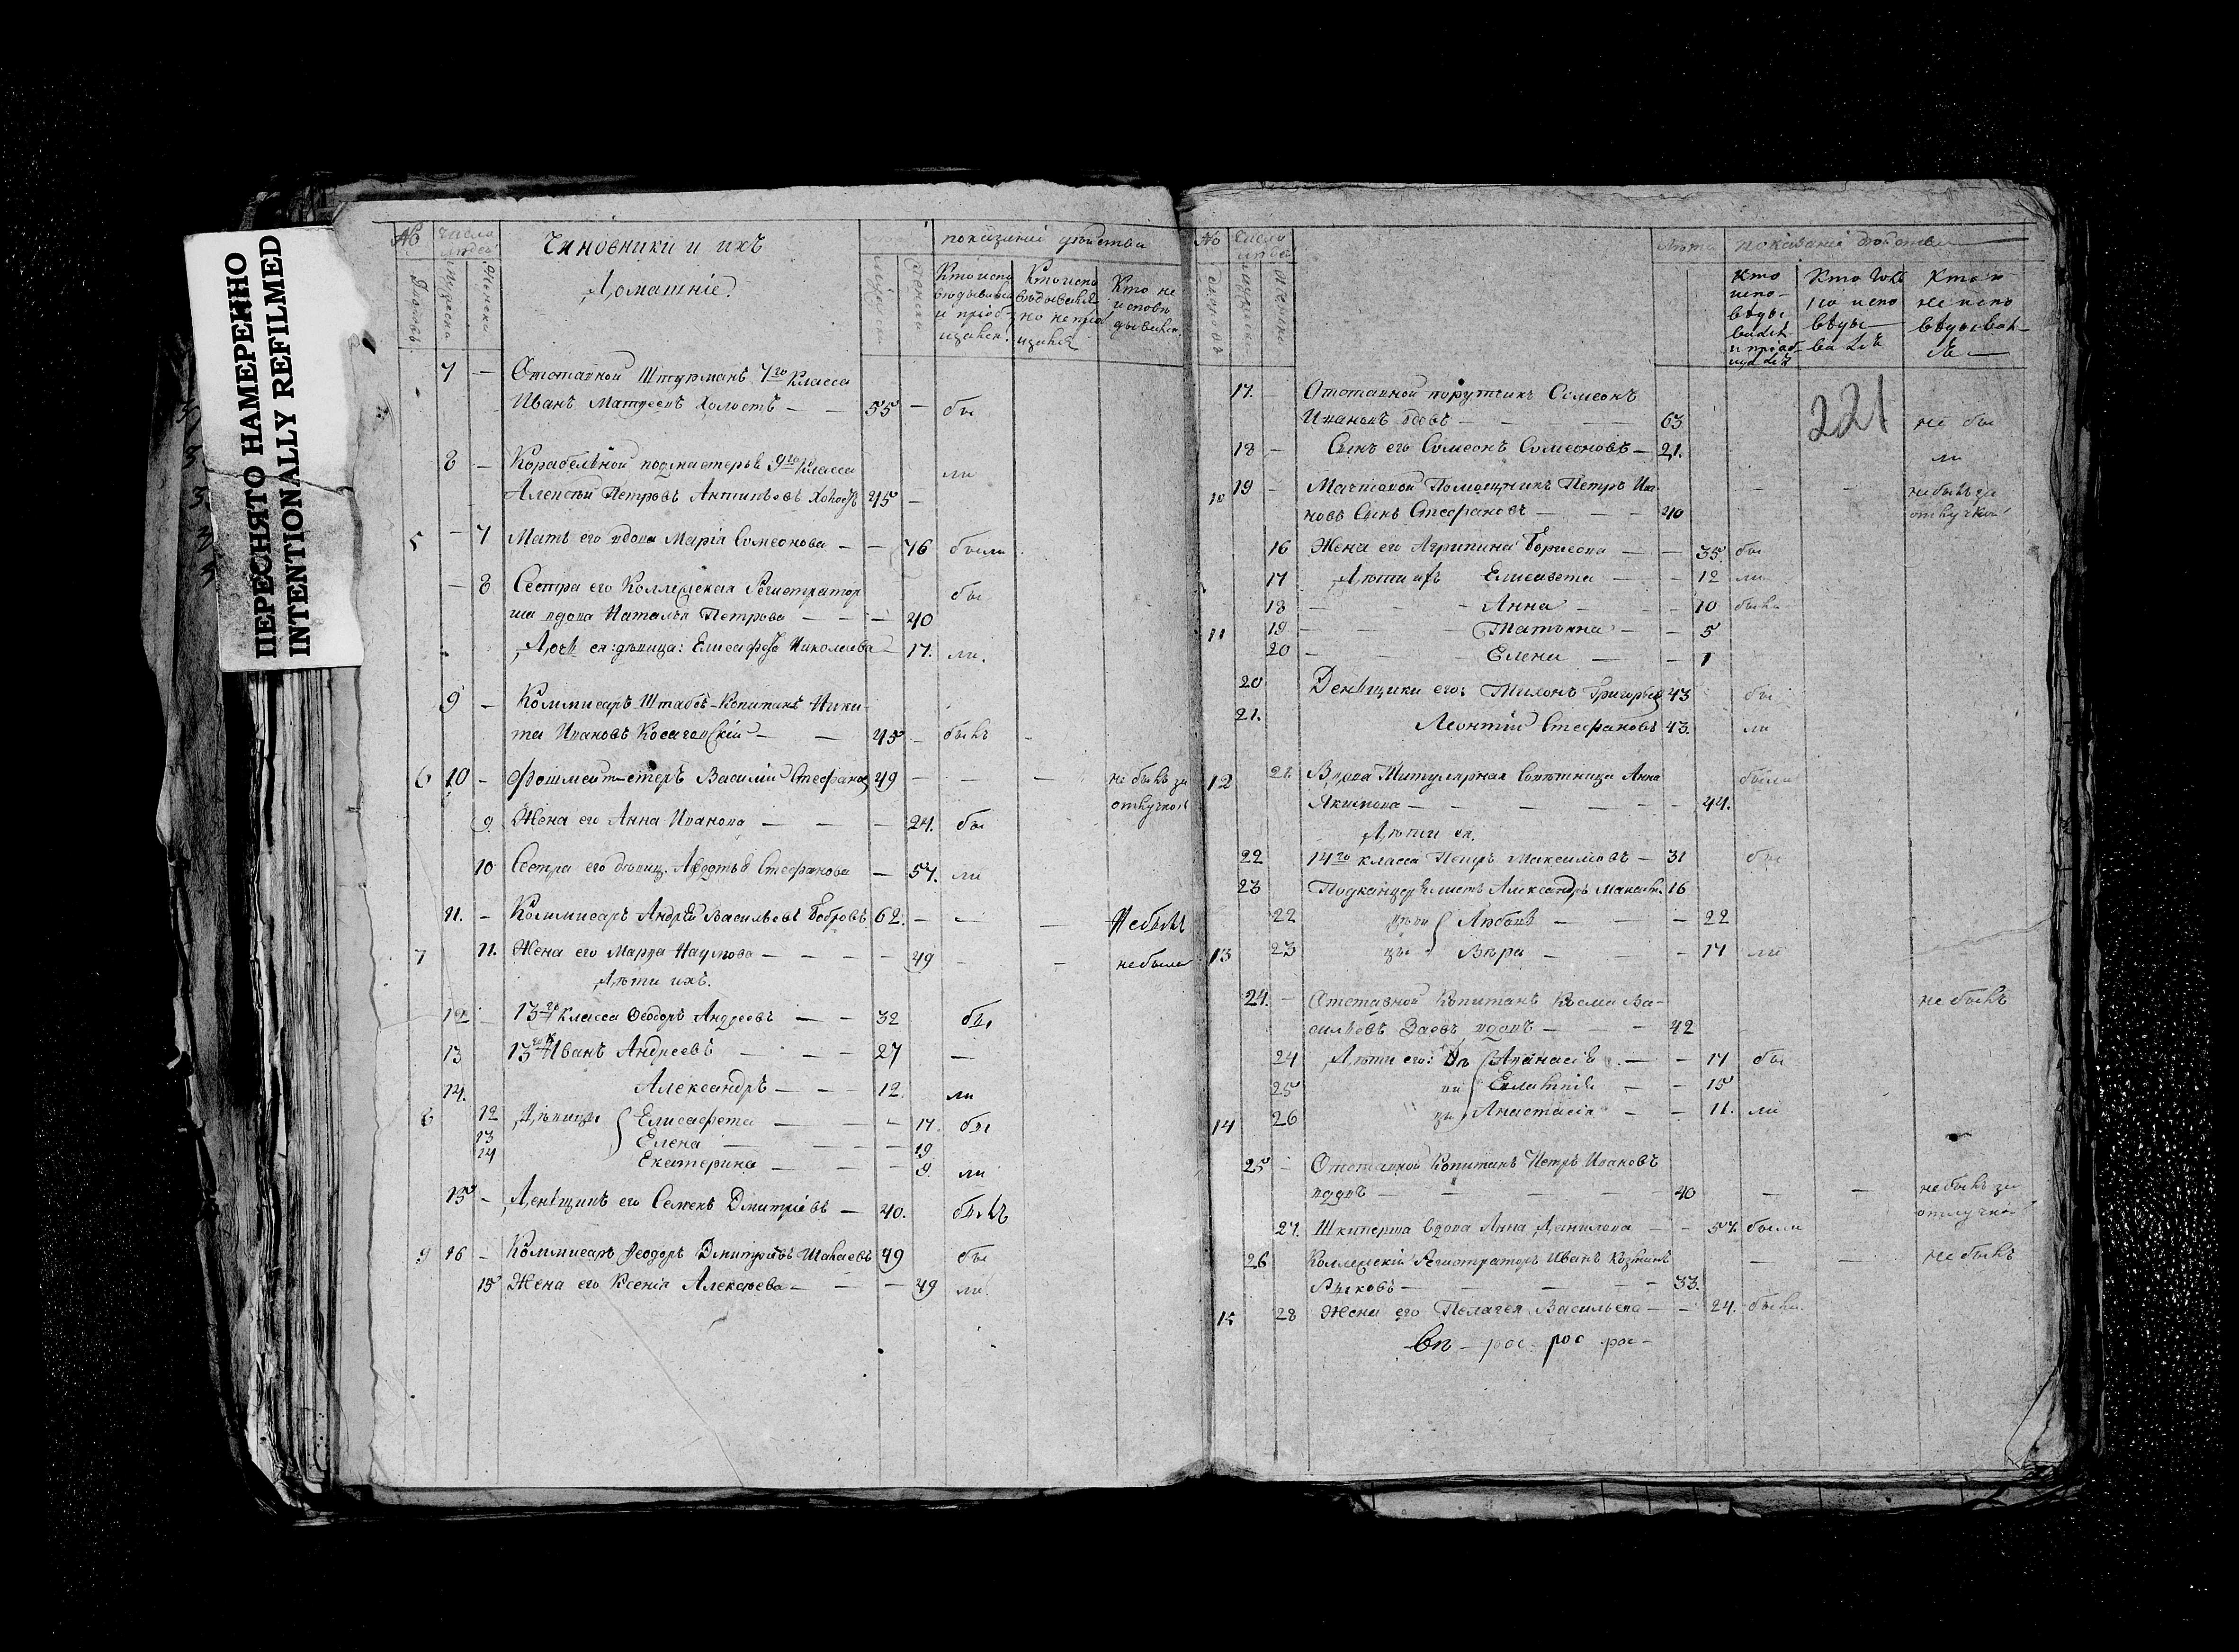 ПЕРЕСНЯТО НАМЕРЕННО
INTENTIONALLY REFILMED
№ Число людей Чиновники и ихъ показаніе дѣйства
Домашніе.
Кто не
7 — Отставной Штурманъ 7го класса
Иванъ Матвеевъ холостъ — — 55 — бы
8 — Корабельной подмастерье 9го класса
ли
Алексѣй Петровъ Антипьевъ холостъ 45 —
5 — 7 Мать его вдова Марія Симеонова — — 76 были
— 8 Сестра его Коллежская Регистратор
бы
ша вдова Наталья Петрова — — — 40
Дочь ея: дѣвица: Елисавета Николаева — 17. ли.
9 — Коммисаръ Штабсъ-Капитанъ Ники-
та Ивановъ — — 45 — былъ —
6 10 — Василій Стефановъ 49 — — — не былъ за
отлучкой
9. Жена его Анна Иванова — — — 24. бы
10 Сестра его дѣвиц. Авдотья Стефанова — 57. ли
11. — Коммисаръ Андрей Васильевъ Бобровъ 62. — — — Не былъ
7 11. Жена его Марфа Наумова — — — — 49 — — не была
Дѣти ихъ.
12 — 13го класса Ѳеодоръ Андреевъ — — 32 бы
13 13го к Иванъ Андреевъ — — — 27 —
14. Александръ — — 12. ли
8 12 Дѣвицы { Елисавета — — — 17. бы
13 Елена — — — — 19
14 Екатерина — — — 9. ли
15 — Деньщикъ его Семенъ Дмитріевъ — 40. былъ
9 16 — Коммисаръ Ѳеодоръ Дмитріевъ 49 бы
15 Жена его Ксенія Алексѣева — — — 49 ли.
№ Число людей лѣта показаніе дѣйства
Кто испо-вѣдывался и пріоб-щался
Кто не испо вѣдывал-ся
221
17. — Отставной порутчикъ Симеонъ
Ивановъ вдовъ — — — 63 не бы
18 — Сынъ его Симеонъ Симеоновъ — 21. ли
10 19 — Мачтовой Помощникъ Петръ Ива-
— — не былъ за
новъ Сынъ Стефановъ — — — 40 отлучкой
16 Жена его Агрипина Борисова — — 35 бы
17 Дѣти ихъ Елисавета — — 12 ли
18 — — — Анна — — 10 были
11 19 — — — Татьяна — — 5
20 — — — Елена — — 1
20 Деньщики его: Тихонъ Григорьевъ 43 бы
21. Леонтій Стефановъ 43. ли
12 21. Вдова Титулярная Совѣтница Анна были
Якимова — — — — — 44.
Дѣти ея.
22 14го класса Петръ Максимовъ — 31 бы
23 Подканцеляристъ Александръ Максим. 16
22 дѣви { Любовь — — — 22
13 23 цы Вѣра — — — 17 ли
24. — Отставной Капитанъ Косма Ва- не былъ
сильевъ Заевъ вдовъ — — — 42
24 Дѣти его: Дѣ { Афанасія — — 17 бы
25 ви — — 15
14 26 цы Анастасія — — 11. ли
25 — Отставной Капитанъ Петръ Ивановъ
вдовъ — — — — 40 — — не былъ за
отлучкой
27. Шкиперша вдова Анна Данилова — — 57. были
26 Коллежскій Регистраторъ Иванъ Козминъ — — не былъ
— — — — 33.
15 28 Жена его Пелагея Васильева — — 24. были